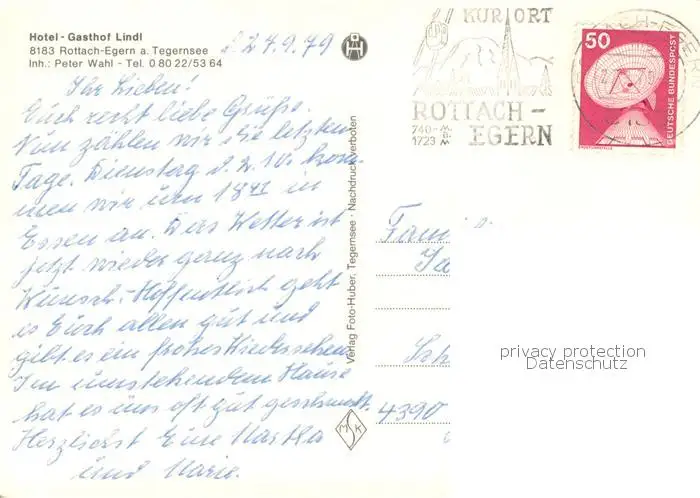 Hotel - Gasthof Lindl
8183 Rottach-Egern a. Tegernsee
Inh.: Peter Wahl - Tel. 0 80 22/53 64
d. 27.9.79
Ihr Lieben!
Euch recht liebe Grüße.
Nun zählen wir die letzten
Tage. Dienstag d. 2.10. kom-
men wir um 18 41 in
Essen an. Das Wetter ist
jetzt wieder ganz nach
Wunsch. Hoffentlich geht
es Euch allen gut und
gibt es ein frohes Wiedersehen.
Im umstehenden Hause
hat es uns oft gut geschmeckt.
Herzlichst Eure
und
Verlag Foto-Huber, Tegernsee · Nachdruck verboten
MSK
KURORT
ROTTACH-
EGERN
740-M.
1723 M
50
DEUTSCHE BUNDESPOST
ERDFUNKSTELLE
Fam
4390
privacy protection
Datenschutz